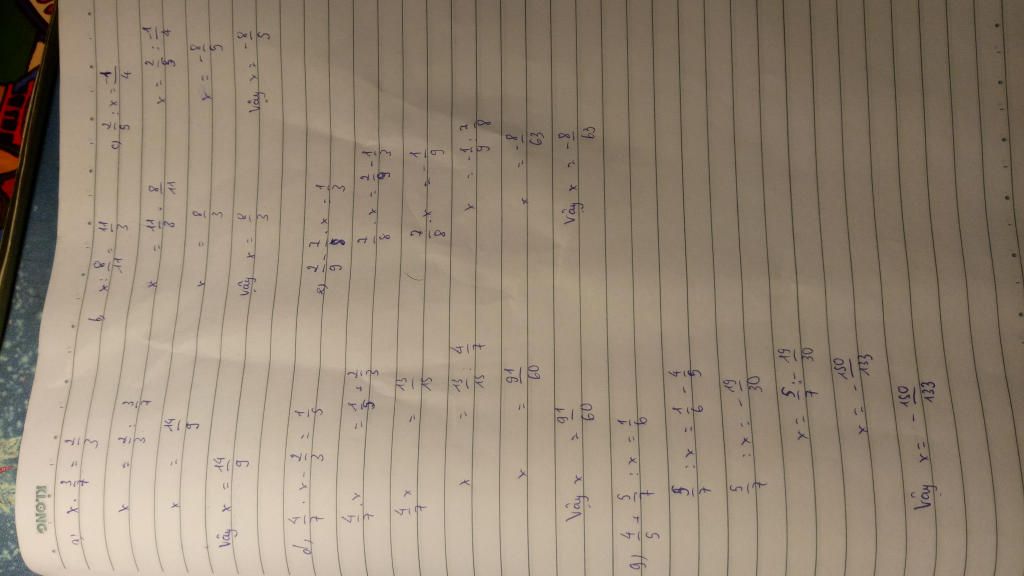 KLONG
a) x . 3/7 = 2/3
x = 2/3 : 3/7
x = 14/9
Vậy x = 14/9
b) x : 8/11 = 11/3
x = 11/8 . 8/11
x = 8/3
Vậy x = 8/3
c) 2/5 : x = -1/4
x = 2/5 : -1/4
x = -8/5
Vậy x = -8/5
d) 4/7 . x - 2/3 = 1/5
4/7 . x = 1/5 + 2/3
4/7 x = 13/15
x = 13/15 : 4/7
x = 91/60
Vậy x = 91/60
e) 2/9 - 7/8 . x = 1/3
7/8 . x = 2/9 - 1/3
7/8 . x = -1/9
x = -1/9 : 7/8
x = -8/63
Vậy x = -8/63
g) 4/5 + 5/7 : x = 1/6
5/7 : x = 1/6 - 4/5
5/7 : x = -19/30
x = 5/7 : -19/30
x = -150/133
Vậy x = -150/133